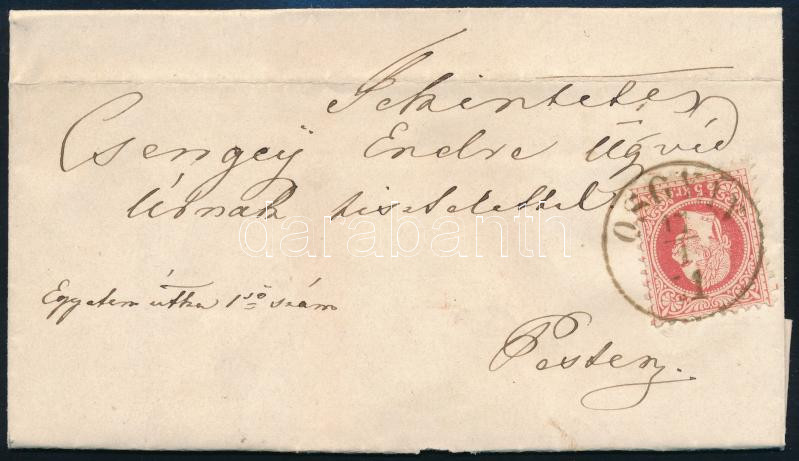 Tekintetes
Csengeÿ Endre Ügyvéd
Úrnak tisztelettel
Egyetem útka 1ső szám
Pesten.
5 kr.
darabanth